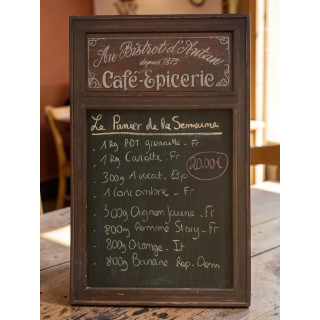 Au Bistrot d'Antan
depuis 1875
Café-Epicerie
Le Panier de la Semaine
- 1 kg PDT grenaille - Fr
- 1 kg Carotte - Fr
20,00€
- 300g Avocat - Esp
- 1 Concombre - Fr
- 300g Oignon Jaune - Fr
- 800g Pomme Story - Fr
- 800g Orange - It
- 800g Banane Rep. Dom